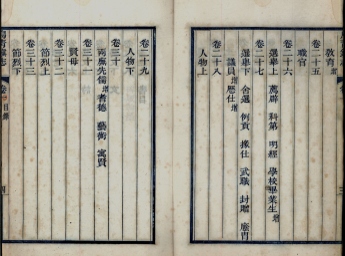 教育增
卷二十五
職官
卷二十六
選舉上 薦辟 科第 明經 學校畢業生增
卷二十七
選舉下 舍選 例貢 掾仕 武職 封贈 廕胄
議員增 歷仕增
卷二十八
人物上
卷二十九
人物下
卷三十
兩廡先儒增 耆德 藝術 寓賢
卷三十一
賢母
卷三十二
節烈上
卷三十三
節烈下